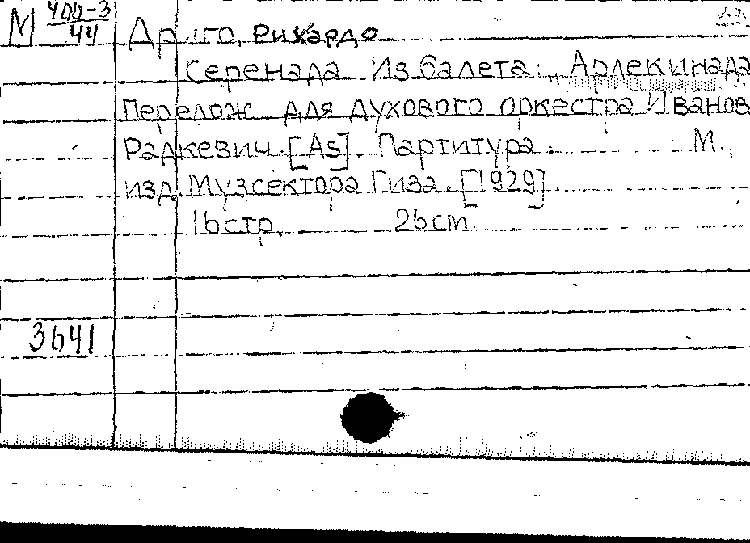 М 400-3/44
Дриго, Рихардо
Серенада из балета: „Арлекинада
Перелож. для духового оркестра Иванов
Радкевич. [As]. Партитура. М.,
изд. Музсектора Гиза. [1929]
16 стр. 26 см.
3641